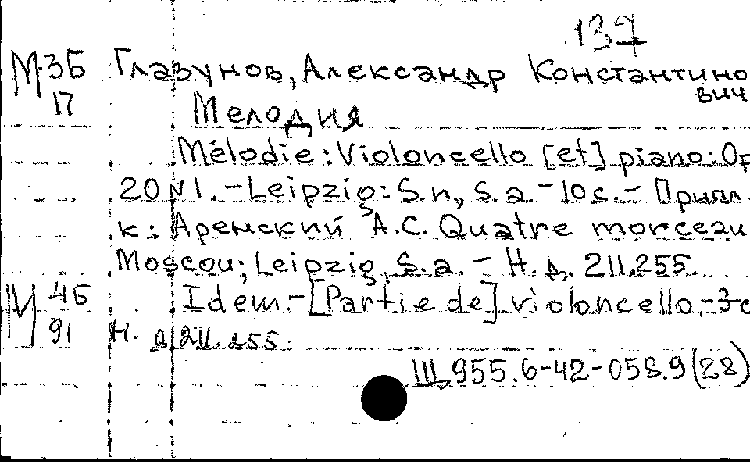 137
М 3Б Глазунов, Александр Константино
17 вич
Мелодия
Mélodie: Violoncello [et] piano: Op
20 N1. – Leipzig: S.n, s.a. – 10 с. – Прилл.
к: Аренский А.С. Quatre morceau
Moscou; Leipzig, s.a. – Н.д. 211.255
М 4Б Idem. – [Partie de] violoncello. – 3 с
91 Н. д 211.255
Ш 955.6-42-058.9(28)